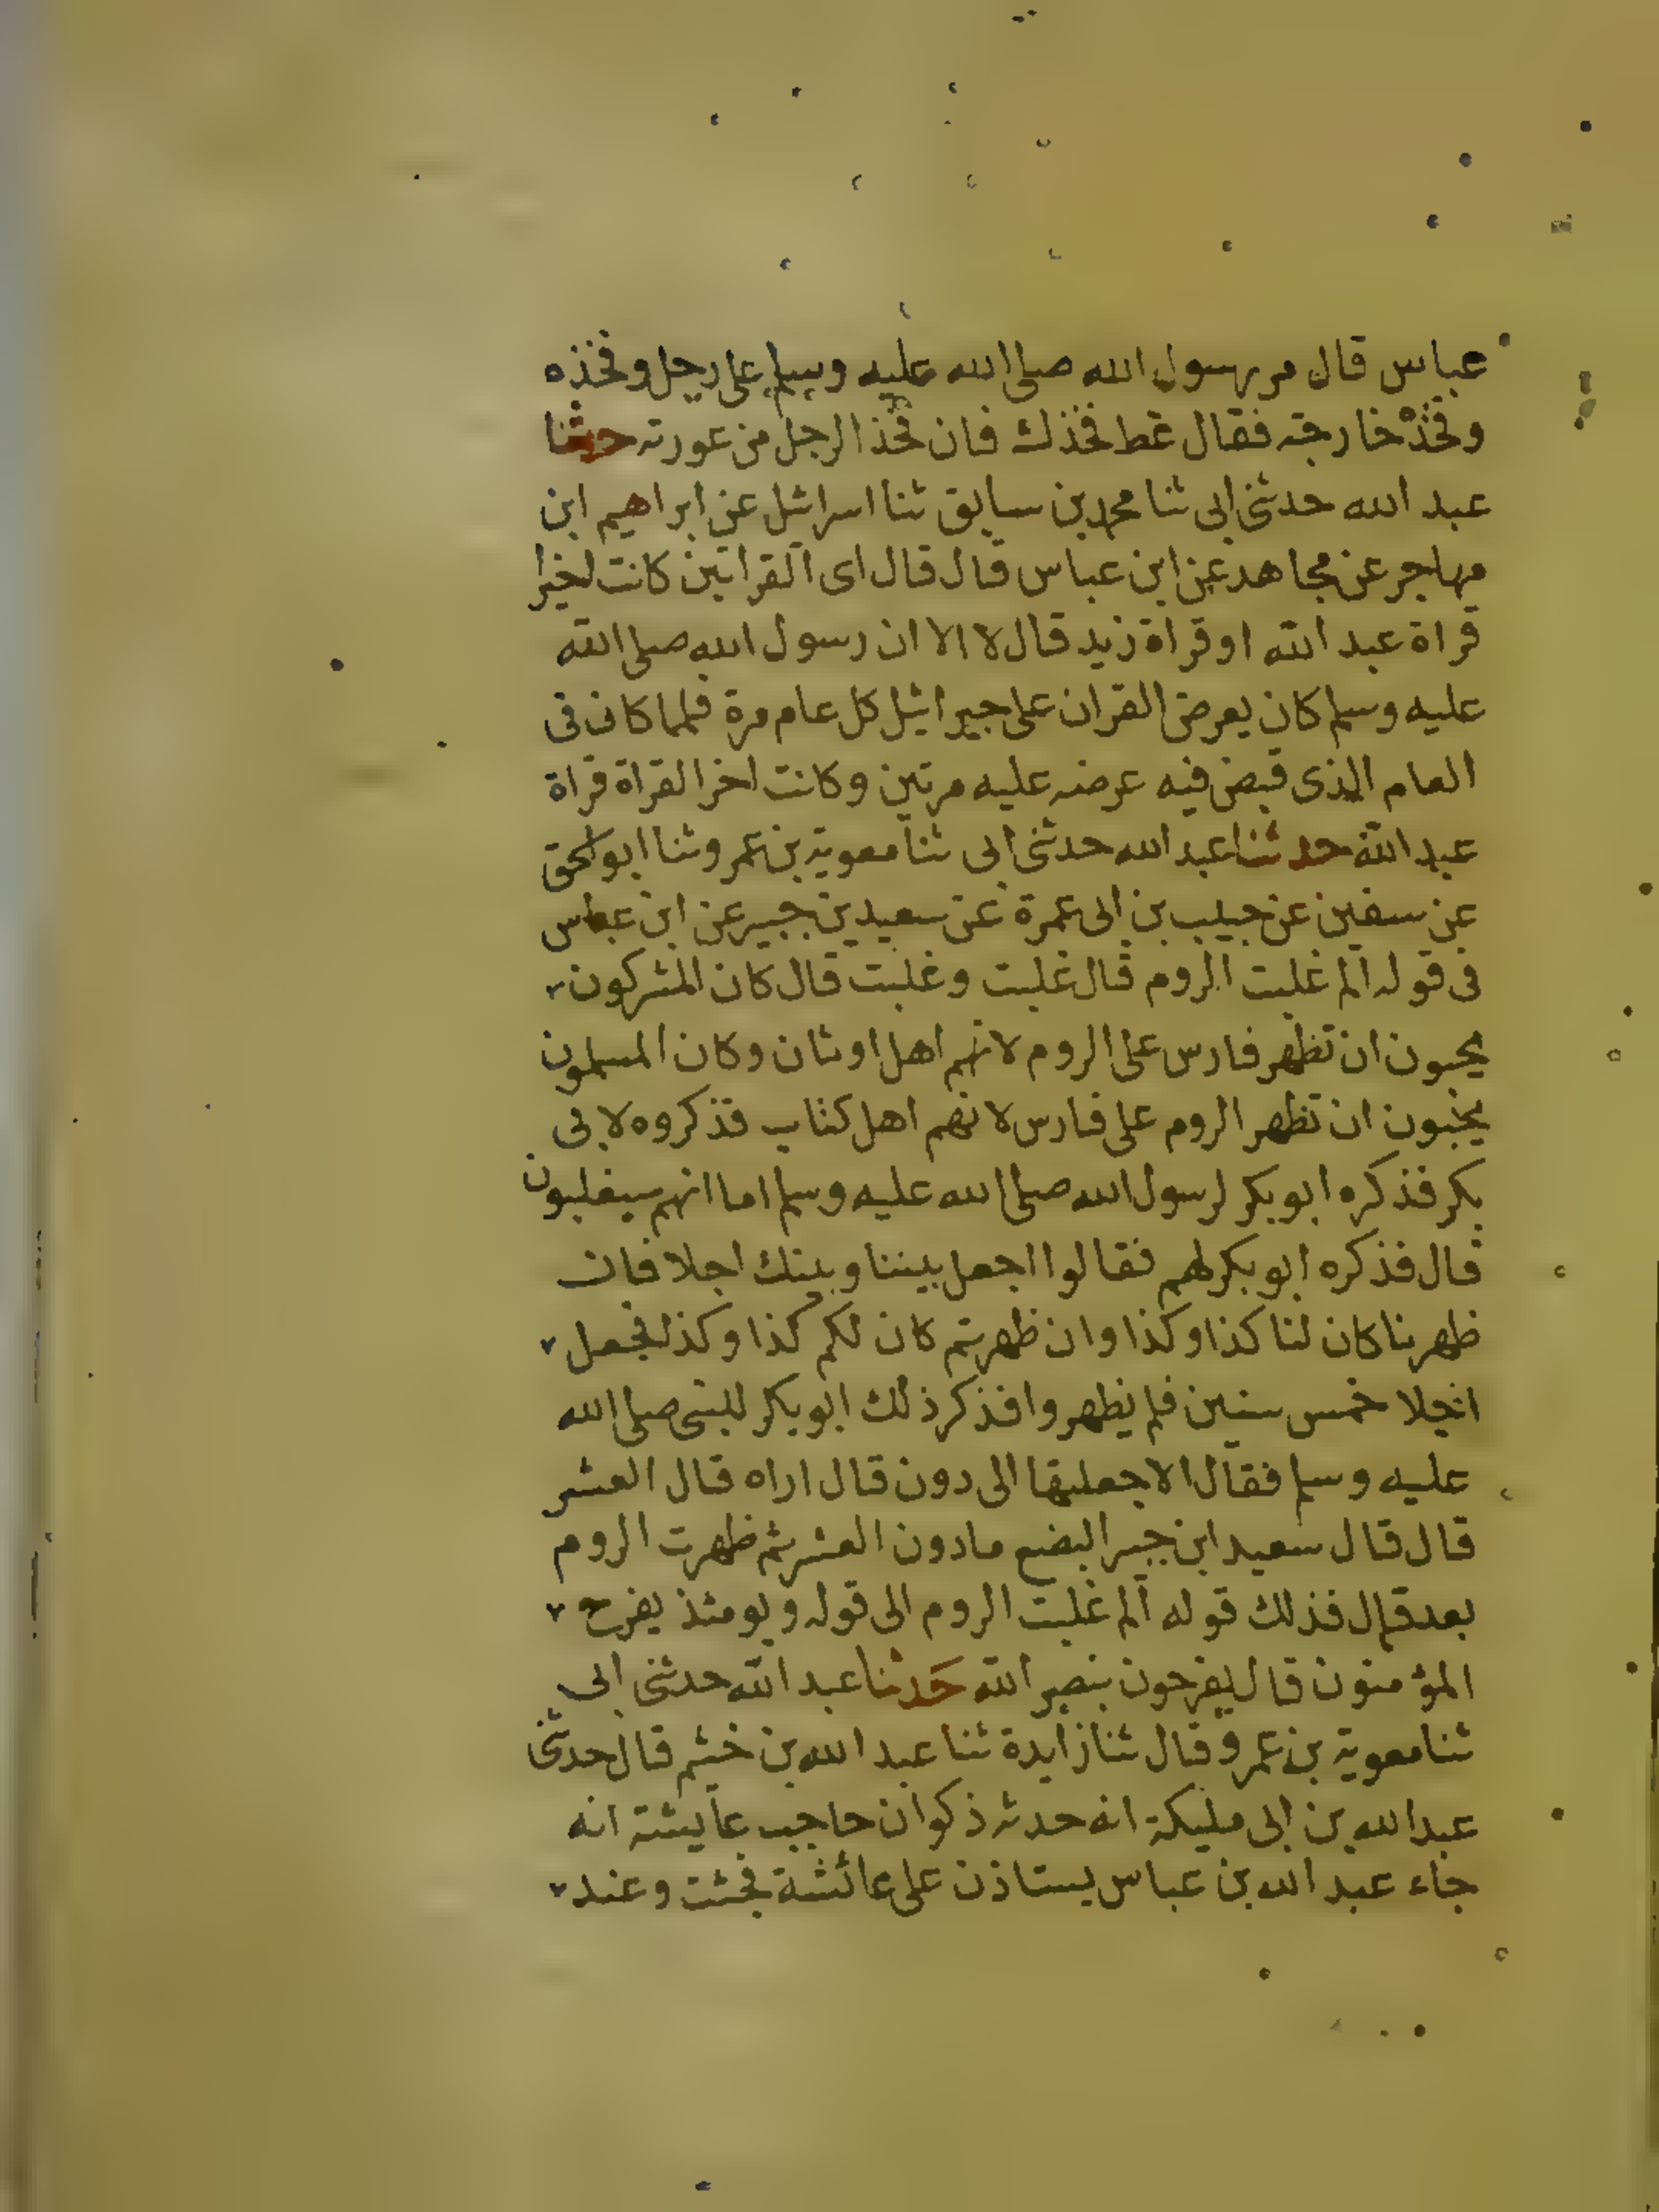 عباس قال مر رسول الله صلى الله عليه وسلم على رجل وفخذه
وفخذه خارجة فقال غط فخذك فان فخذ الرجل من عورته حدثنا
عبد الله حدثنى ابى ثنا محمد بن سابق ثنا اسرائيل عن ابراهيم ابن
مهاجر عن مجاهد عن ابن عباس قال قال اى القراتين كانت اخيرا
قراة عبد الله او قراة زيد قال لا الا ان رسول الله صلى الله
عليه وسلم كان يعرض القران على جبرائيل كل عام مرة فلما كان فى
العام الذى قبض فيه عرضه عليه مرتين وكانت اخر القراة قراة
عبد الله حدثنا عبد الله حدثنى ابى ثنا معوية بن عمرو ثنا ابو اسحق
عن سفين عن حبيب بن ابى عمرة عن سعيد بن جبير عن ابن عباس
فى قوله الم غلبت الروم قال غلبت وغلبت قال كان المشركون
يحبون ان تظهر فارس على الروم لانهم اهل اوثان وكان المسلمون
يحبون ان تظهر الروم على فارس لانهم اهل كتاب فذكروه لابى
بكر فذكره ابو بكر لرسول الله صلى الله عليه وسلم اما انهم سيغلبون
قال فذكره ابو بكر لهم فقالوا اجعل بيننا وبينك اجلا فان
ظهرنا كان لنا كذا وكذا وان ظهرتم كان لكم كذا وكذا فجعل
اجلا خمس سنين فلم يظهروا فذكر ذلك ابو بكر للنبى صلى الله
عليه وسلم فقال الا جعلتها الى دون قال اراه قال العشر
قال قال سعيد ابن جبير البضع ما دون العشر ثم ظهرت الروم
بعد قال فذلك قوله الم غلبت الروم الى قوله ويومئذ يفرح
المؤمنون قال يفرحون بنصر الله حدثنا عبد الله حدثنى ابى
ثنا معوية بن عمرو قال ثنا زايدة ثنا عبد الله بن خثيم قال حدثنى
عبد الله بن ابى مليكة انه حدثه ذكوان حاجب عايشة انه
جاء عبد الله بن عباس يستاذن على عائشة فجئت وعند